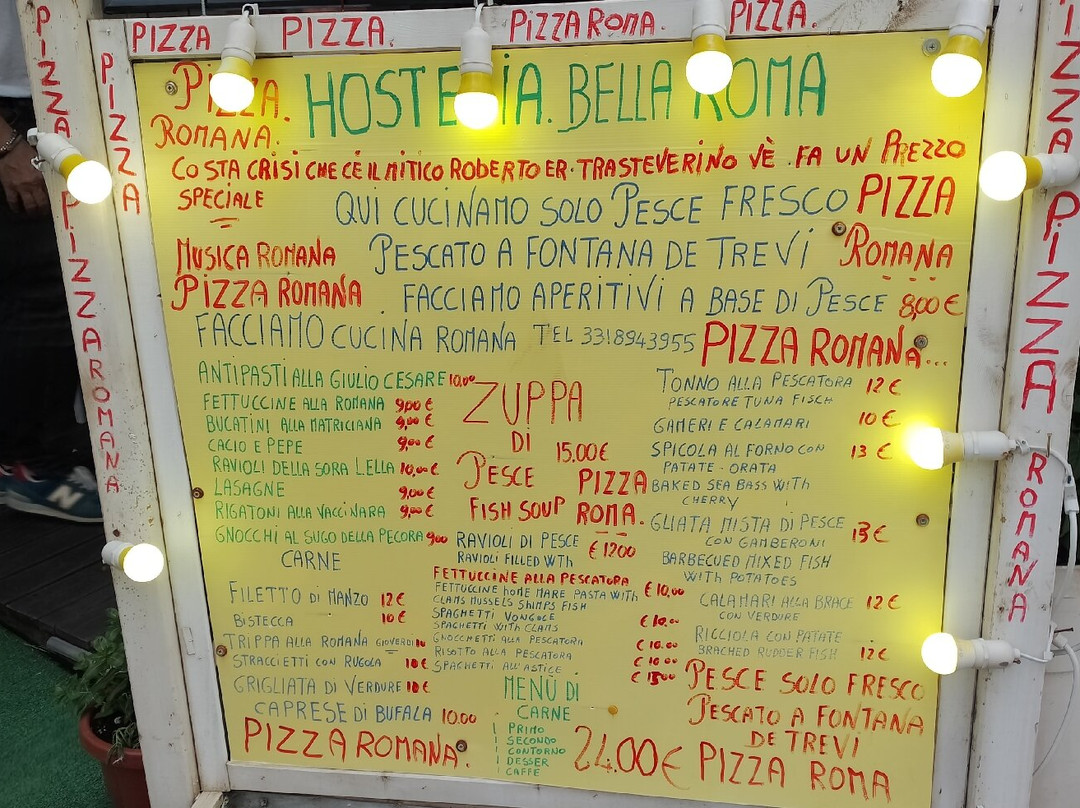 PIZZA PIZZA. PIZZA ROMA. PIZZA.
PIZZA
PIZZA ROMANA
PIZZA
PIZZA
PIZZA
ROMANA
PIZZA.
HOSTERIA. BELLA ROMA
ROMANA.
COSTA CRISI CHE CÈ IL MITICO ROBERTO ER. TRASTEVERINO VÈ. FA UN PREZZO
SPECIALE
QUI CUCINAMO SOLO PESCE FRESCO PIZZA
MUSICA ROMANA PESCATO A FONTANA DE TREVI ROMANA
PIZZA ROMANA FACCIAMO APERITIVI A BASE DI PESCE 8,00€
FACCIAMO CUCINA ROMANA TEL 3318943955 PIZZA ROMANA...
ANTIPASTI ALLA GIULIO CESARE 10,00
FETTUCCINE ALLA ROMANA 9,00€
BUCATINI ALLA MATRICIANA 9,00€
CACIO E PEPE 9,00€
RAVIOLI DELLA SORA LELLA 10,00€
LASAGNE 9,00€
RIGATONI ALLA VACCINARA 9,00€
GNOCCHI AL SUGO DELLA PECORA 900
CARNE
FILETTO DI MANZO 12€
BISTECCA 10€
TRIPPA ALLA ROMANA GIOVERDI 10
STRACCIETTI CON RUGOLA 10€
GRIGLIATA DI VERDURE 10€
CAPRESE DI BUFALA 10.00
PIZZA ROMANA.
ZUPPA
DI 15.00€
PESCE PIZZA
FISH SOUP ROMA.
RAVIOLI DI PESCE € 1200
RAVIOLI FILLED WTH
FETTUCCINE ALLA PESCATORA
FETTUCCINE HOME MARE PASTA WITH € 10,00
CLAMS MUSSELS SHIMPS FISH
SPAGHETTI VONGOLE € 10.00
SPAGHETTI WITH CLAMS
GNOCCHETTI ALLA PESCATORA € 10.00
RISOTTO ALLA PESCATORA € 10.00
SPAGHETTI ALL'ASTICE € 1500
MENÙ DI
CARNE
PRIMO
SECONDO
CONTORNO
DESSER
CAFFE
24.00€
TONNO ALLA PESCATORA 12€
PESCATORE TUNA FISCH
GAMERI E CALAMARI 10€
SPICOLA AL FORNO CON 13€
PATATE - ORATA
BAKED SEA BASS WITH
CHERRY
GLIATA MISTA DI PESCE 13€
CON GAMBERONI
BARBECUED MIXED FISH
WITH POTATOES
CALAMARI ALLA BRACE 12€
CON VERDURE
RICCIOLA CON PATATE
BRACHED RUDDER FISH 12€
PESCE SOLO FRESCO
PESCATO A FONTANA
DE TREVI
PIZZA ROMA